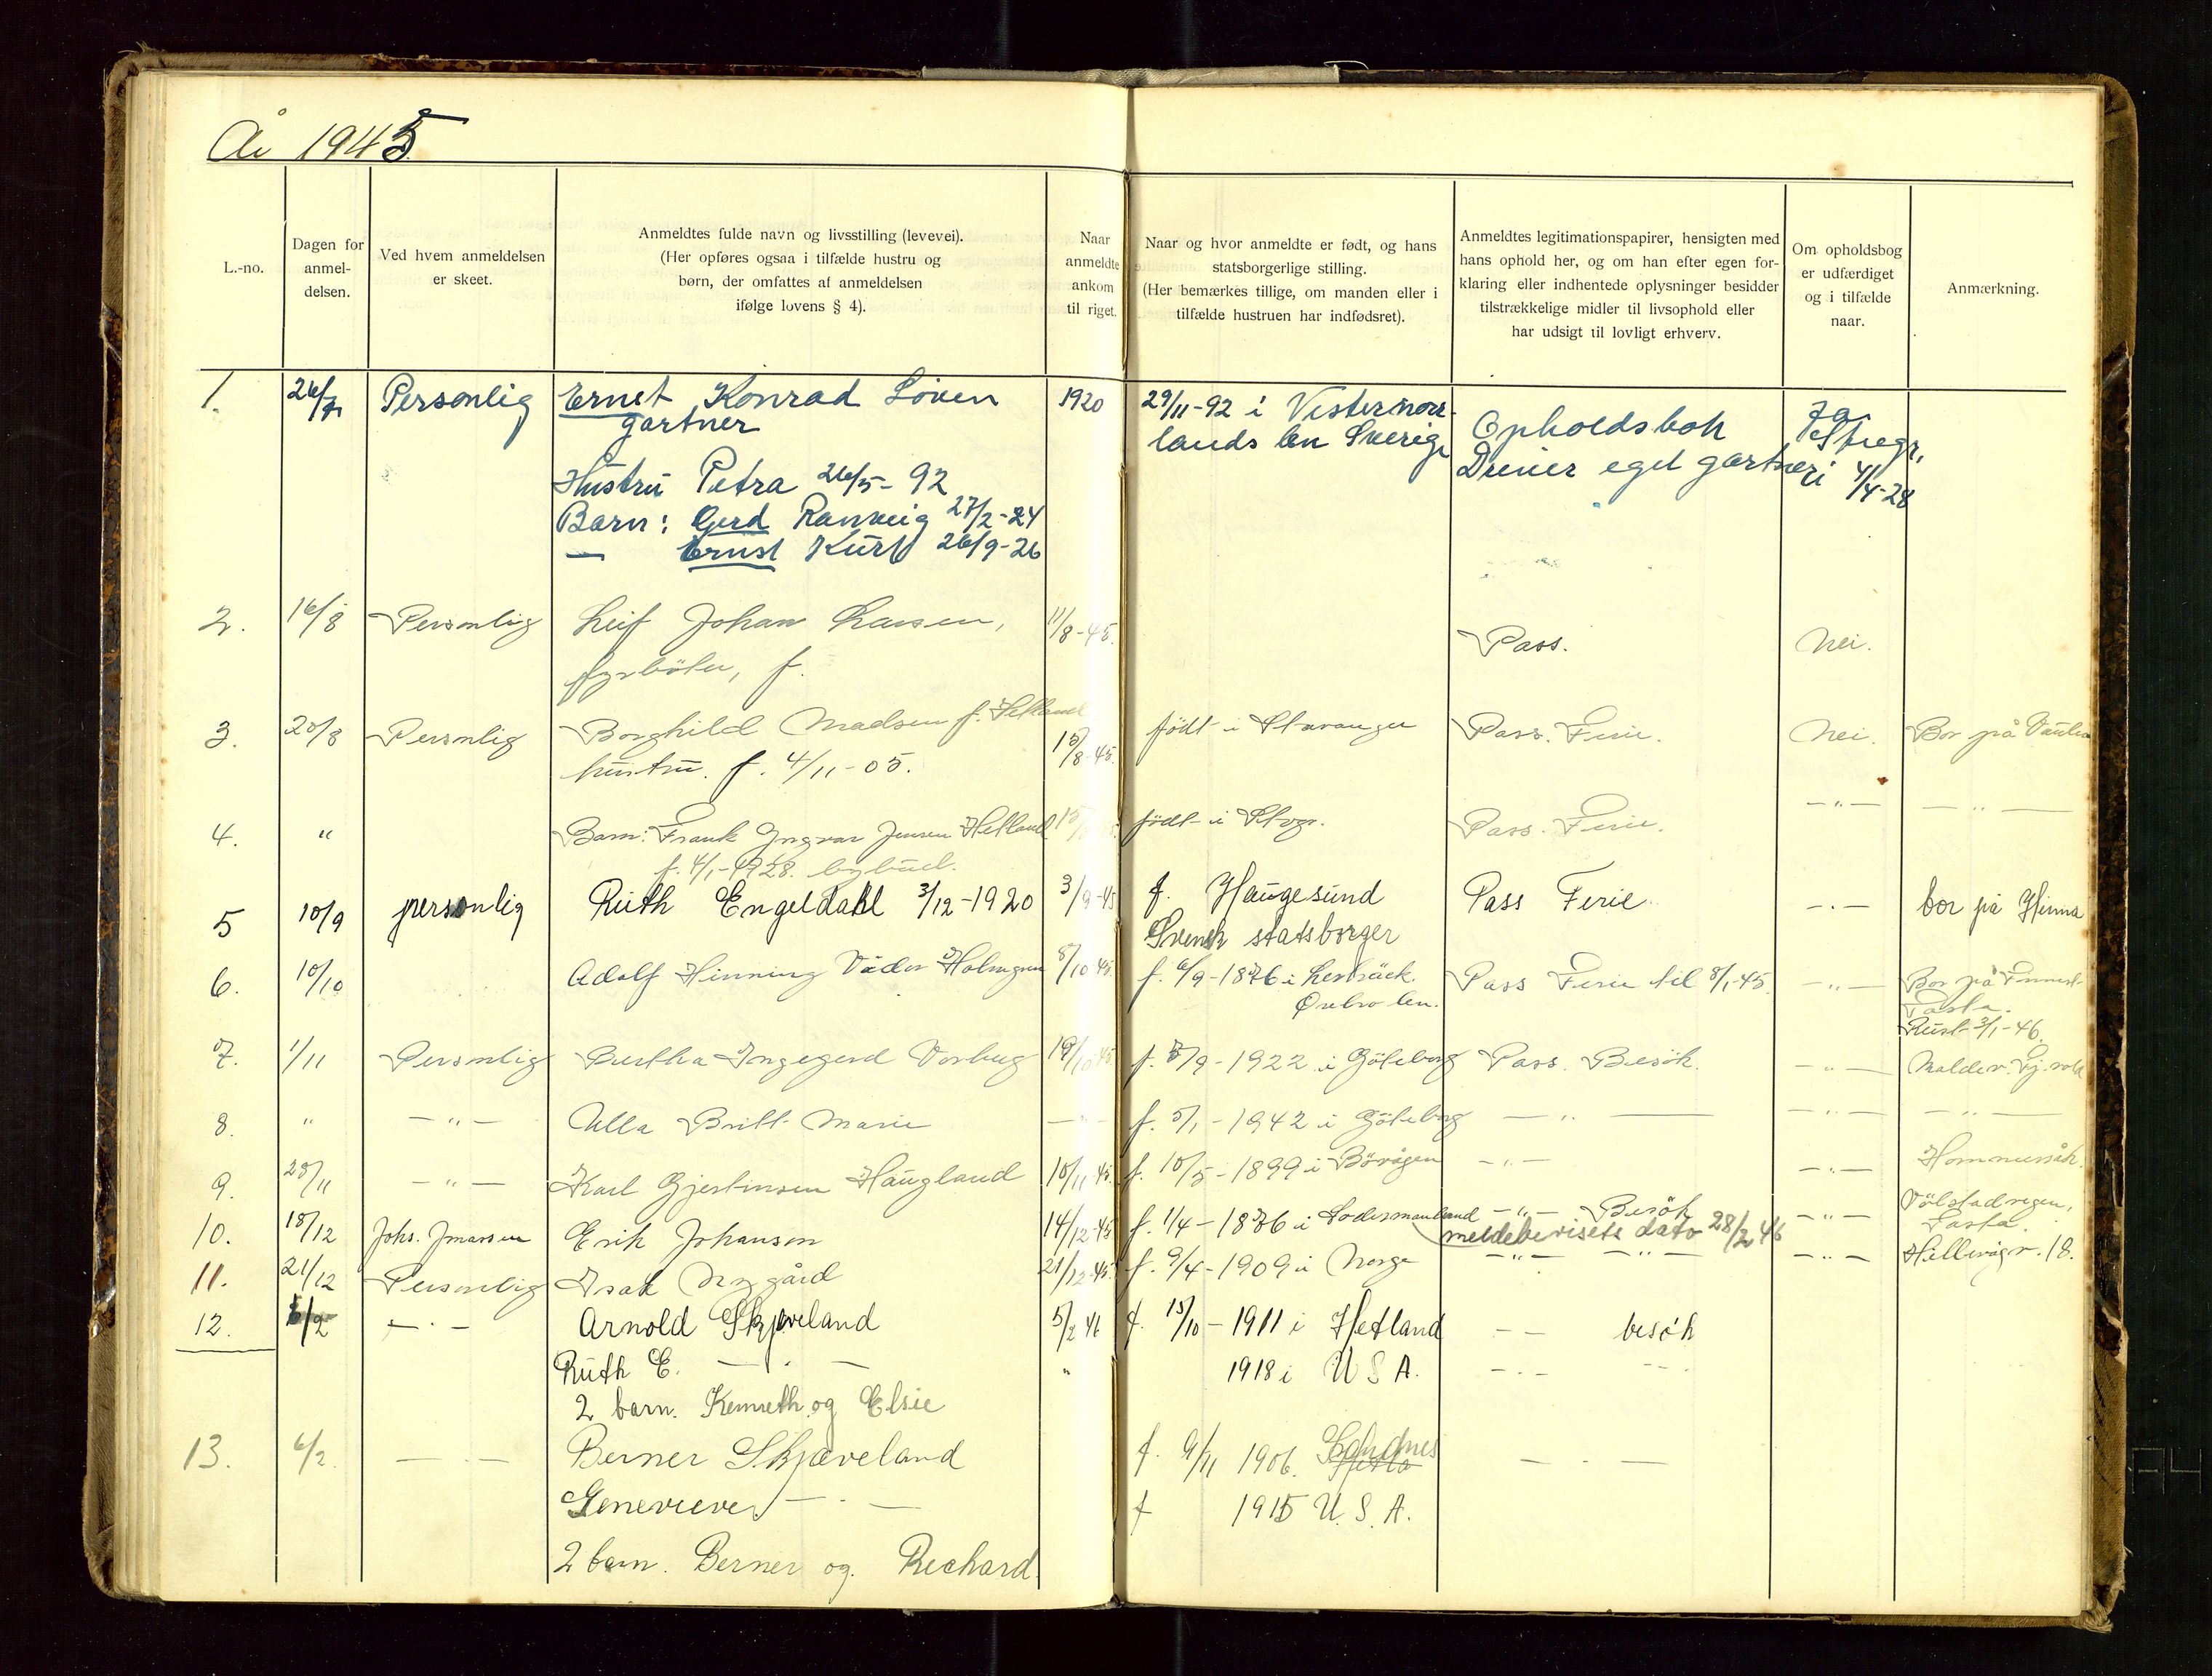 År 1945
L.-no.
Dagen for
anmel-
delsen.
Ved hvem anmeldelsen
er skeet.
Anmeldtes fulde navn og livsstilling (levevei).
(Her opføres ogsaa i tilfælde hustru og
børn, der omfattes af anmeldelsen
ifølge lovens § 4).
Naar
anmeldte
ankom
til riget.
Naar og hvor anmeldte er født, og hans
statsborgerlige stilling.
(Her bemærkes tillige, om manden eller i
tilfælde hustruen har indfødsret).
Anmeldtes legitimationspapirer, hensigten med
hans ophold her, og om han efter egen for-
klaring eller indhentede oplysninger besidder
tilstrækkelige midler til livsophold eller
har udsigt til lovligt erhverv.
Om opholdsbog
er udfærdiget
og i tilfælde
naar.
Anmærkning.
1. Personlig Ernst Konrad Löven 1920 29/11-92 i Vesternorr-
gartner lands len Sverige Opholdsbok Ja
Driver eget gartneri 4/4-28
Hustru Petra 26/5-92
Barn: Gerd Ranveig 27/2-24
— Ernst Kurt 26/9-26
2. 16/8 Personlig Leif Johan Larsen, 11/8-45. Pass. Nei.
fyrböter, f.
3. 20/8 Personlig Borghild Madsen f. Hetland 15/8-45. födt i Stavanger Pass. Ferie. Nei. Bor på
hustru. f. 4/11-05.
4. " Barn: Frank Ingvar Jensen Hetland födt i Stvgr. Pass. Ferie. —"— —"—
f. 4/1-1928. bybud.
5 10/9 personlig Ruth Engeldahl 3/12-1920 3/9-45 f. Haugesund Pass Ferie —.— bor på Hinna
Svensk statsborger
6. 10/10 Adolf Henning Holmgren 8/10 45. f. 6/9-1876 i Pass Ferie til 8/1-45. —"— Bor på
Örebro len. Tasta.
Reist 3/1-46.
7. 1/11 Personlig Ingegerd 19/10 45 f. /9-1922 i Göteborg Pass. Besök. —"—
8. " —"— Ulla Britt Marie —"— f. 5/1-1942 i Göteborg —"— —"— —"—
9. 20/11 —"— Karl Gjertinsen Haugland 10/11 45. f. 10/5-1899 i —"— —"— Hommersåk.
10. 18/12 Johs. Erik Johanson 14/12-45 f. 1/4-1876 i Södermanland —"— Besök —"—
meldebevisets dato 28/2 46 Tasta.
11. 21/12 Personlig Isak Nygård 21/12-45. f. 9/4-1909 i Norge —"— —"— —"— Hillevågv. 18.
12. 6/2 —.— Arnold Skjæveland 5/2 46 f. 15/10-1911 i Hetland — — besök
Ruth E. — . — " 1918 i U S A. — . —
2 barn. Kenneth og Elsie
13. 6/2 — . — Berner Skjæveland f. 9/11 1906. Sandnes — . —
Genevieve — . — f 1915 U. S. A.
2 barn. Berner og Rechard.